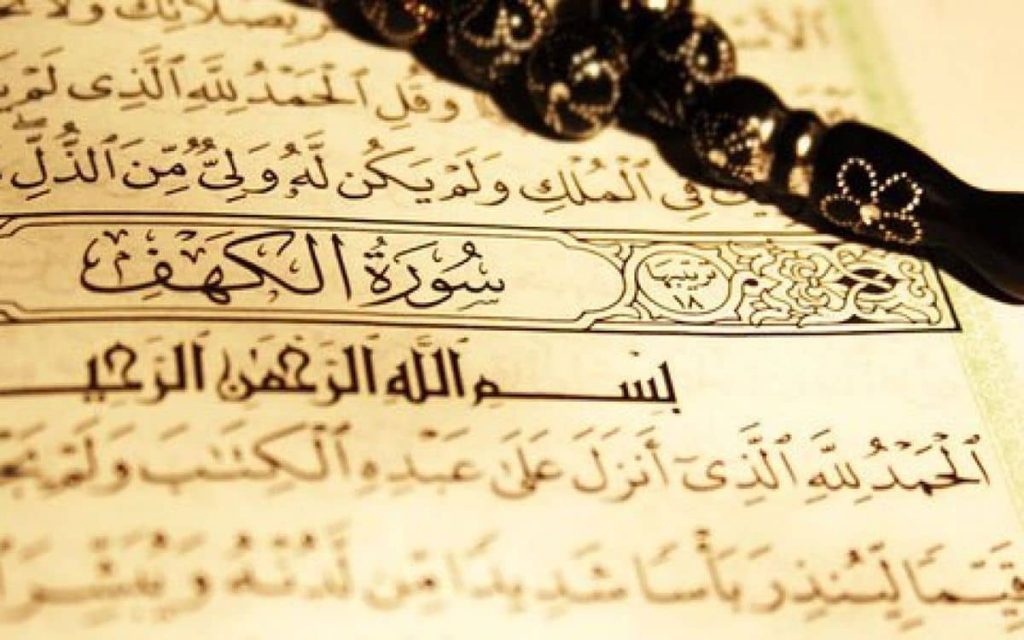 بِصَلَاتِكَ وَلَا
وَقُلِ ٱلْحَمْدُ لِلَّهِ ٱلَّذِى لَمْ
فِى ٱلْمُلْكِ وَلَمْ يَكُن لَّهُۥ وَلِىٌّ مِّنَ ٱلذُّلِّ
سُورَةُ الكَهْفِ ترتيبها ١٨
بِسْمِ اللَّهِ الرَّحْمَٰنِ الرَّحِي
ٱلْحَمْدُ لِلَّهِ ٱلَّذِىٓ أَنزَلَ عَلَىٰ عَبْدِهِ ٱلْكِتَٰبَ وَلَمْ
قَيِّمًا لِّيُنذِرَ بَأْسًا شَدِيدًا مِّن لَّدُنْهُ وَيُبَشِّرَ